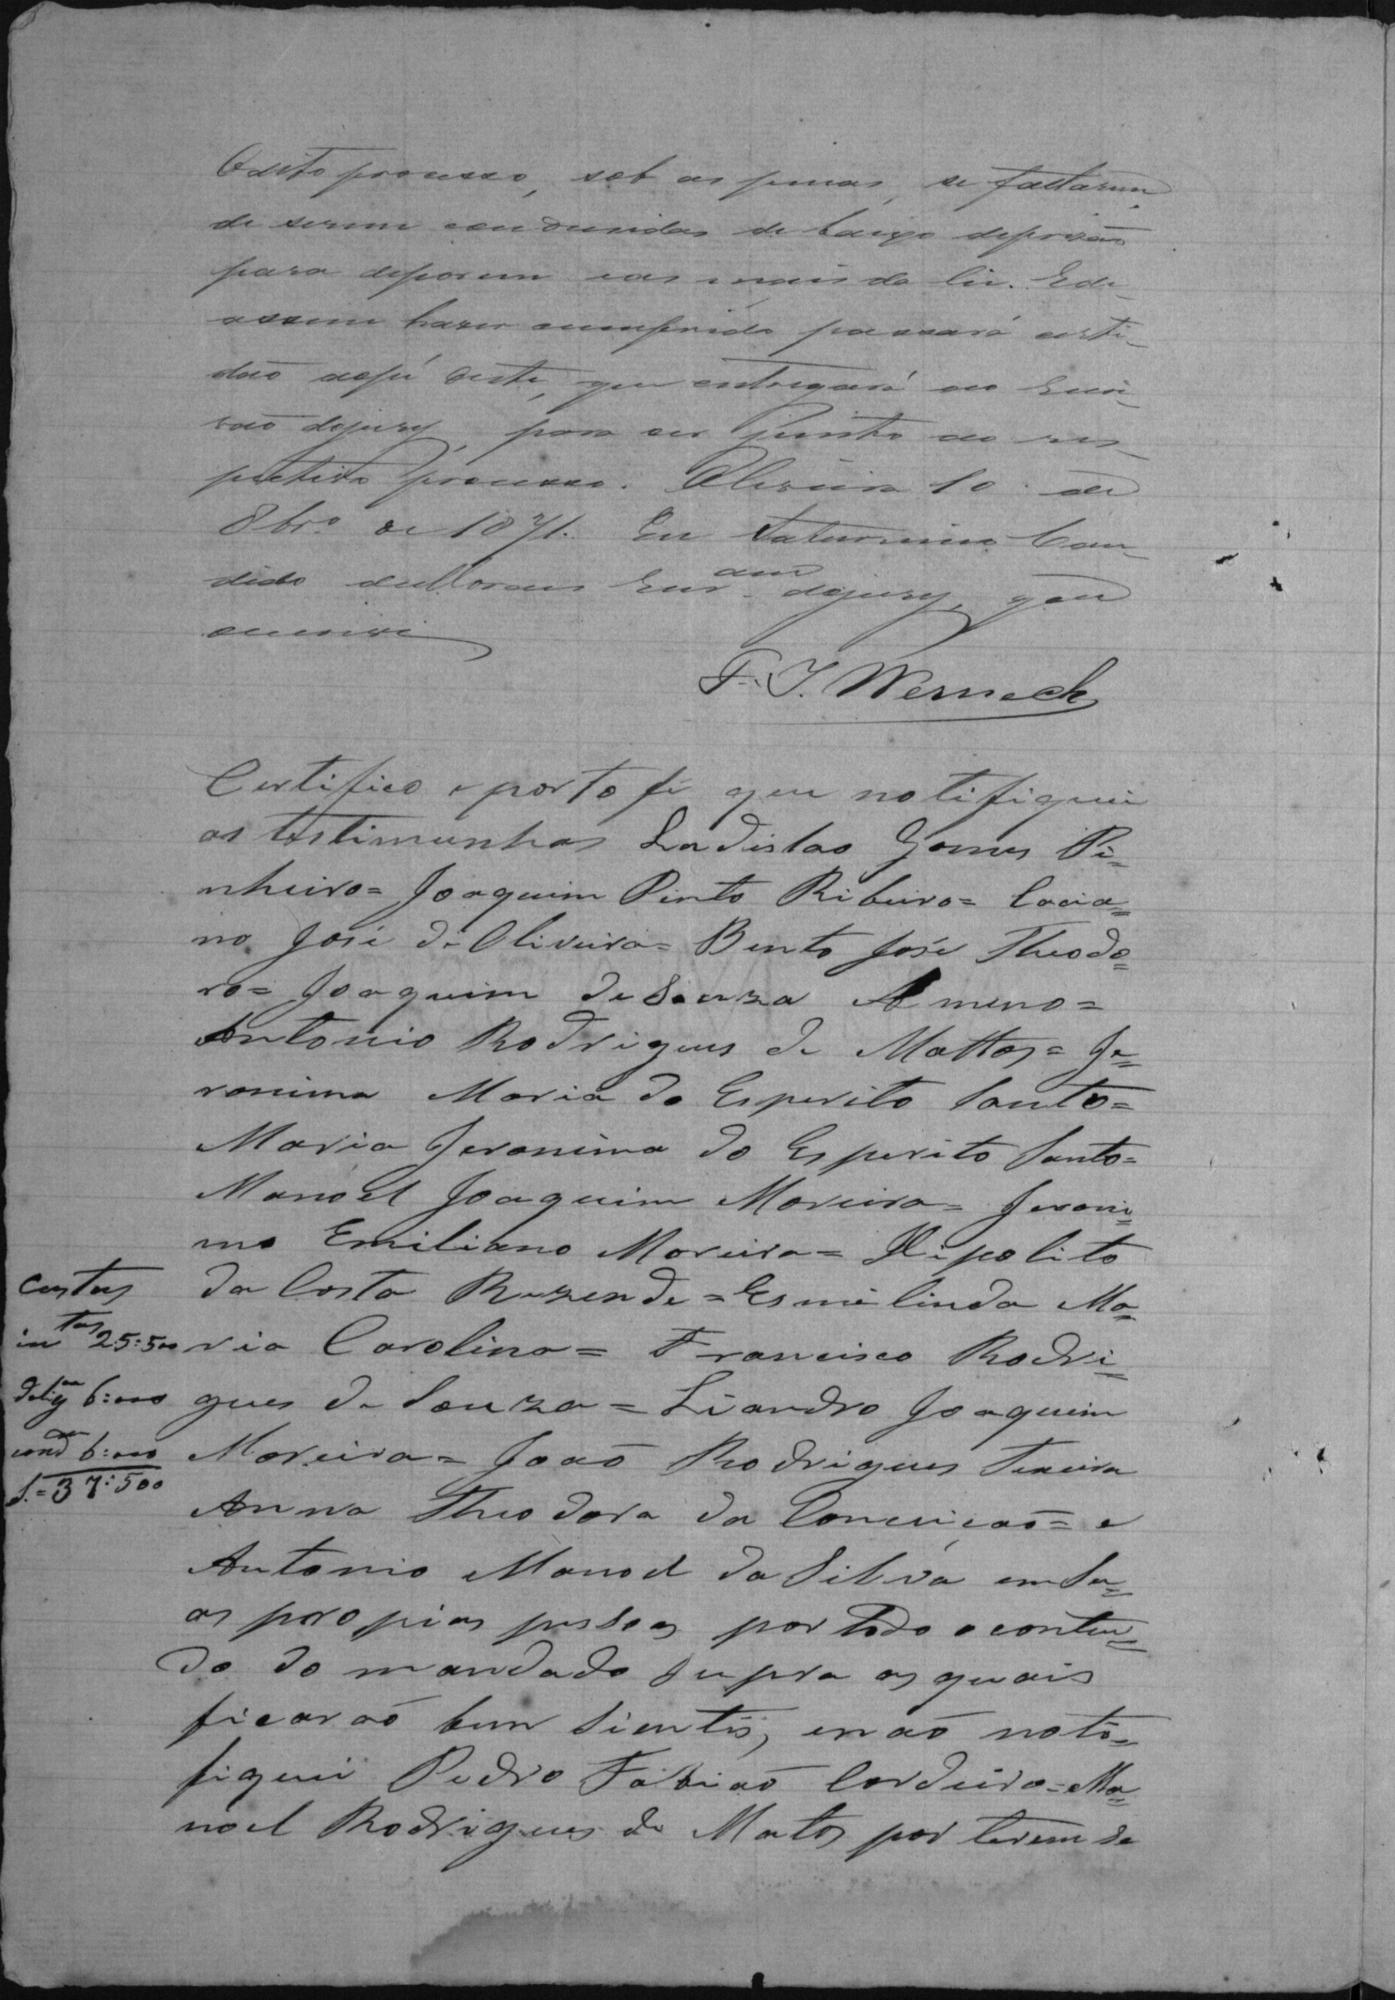 Odito processo, sob as penas, se faltarem,
de serem condusidas de baixo deprizão
para deporem eas mais da lei. Ede
assim haver cumprido passará certi-
dão aopé deste, que entregará ao Escri-
vão dojury, para ser junto ao res-
pectivo processo. Oliveira 10 de
8bro. de 1871. Eu Saturnino Can-
dido deMoraes Escr.am dojury, que
escrevi
F. J. Werneck
Certifico e porto fé que notifiquei
as testimunhas Ladislao Gomes Pi=
nheiro= Joaquim Pinto Ribeiro= Cacia=
no José de Oliveira= Bento José Theodo=
ro= Joaquim de Souza Ameno=
Antonio Rodrigues de Mattos= Je=
ronima Maria do Esperito Santo=
Maria Jeronima do Esperito Santo=
Manoel Joaquim Moreira= Jeroni=
mo Emiliano Moreira= Hipolito
da Costa Rezende= Esmelinda Ma=
ria Carolina= Francisco Rodri=
gues de Souza= Liandro Joaquim
Moreira= João Rodrigues Texeira
Anna Theodora da Conceicão= e
Antonio Manoel da Silva em Su=
as propias pessoas por todo o conteu=
do do mandado supra as quais
ficarão bem Sientes, enão noti=
fiquei Pedro Fabião Cordeiro= Ma=
noel Rodrigues de Matos por terem se
custas
in tas 25:500
delig as 6:000
cond 6:000
S.= 37:500